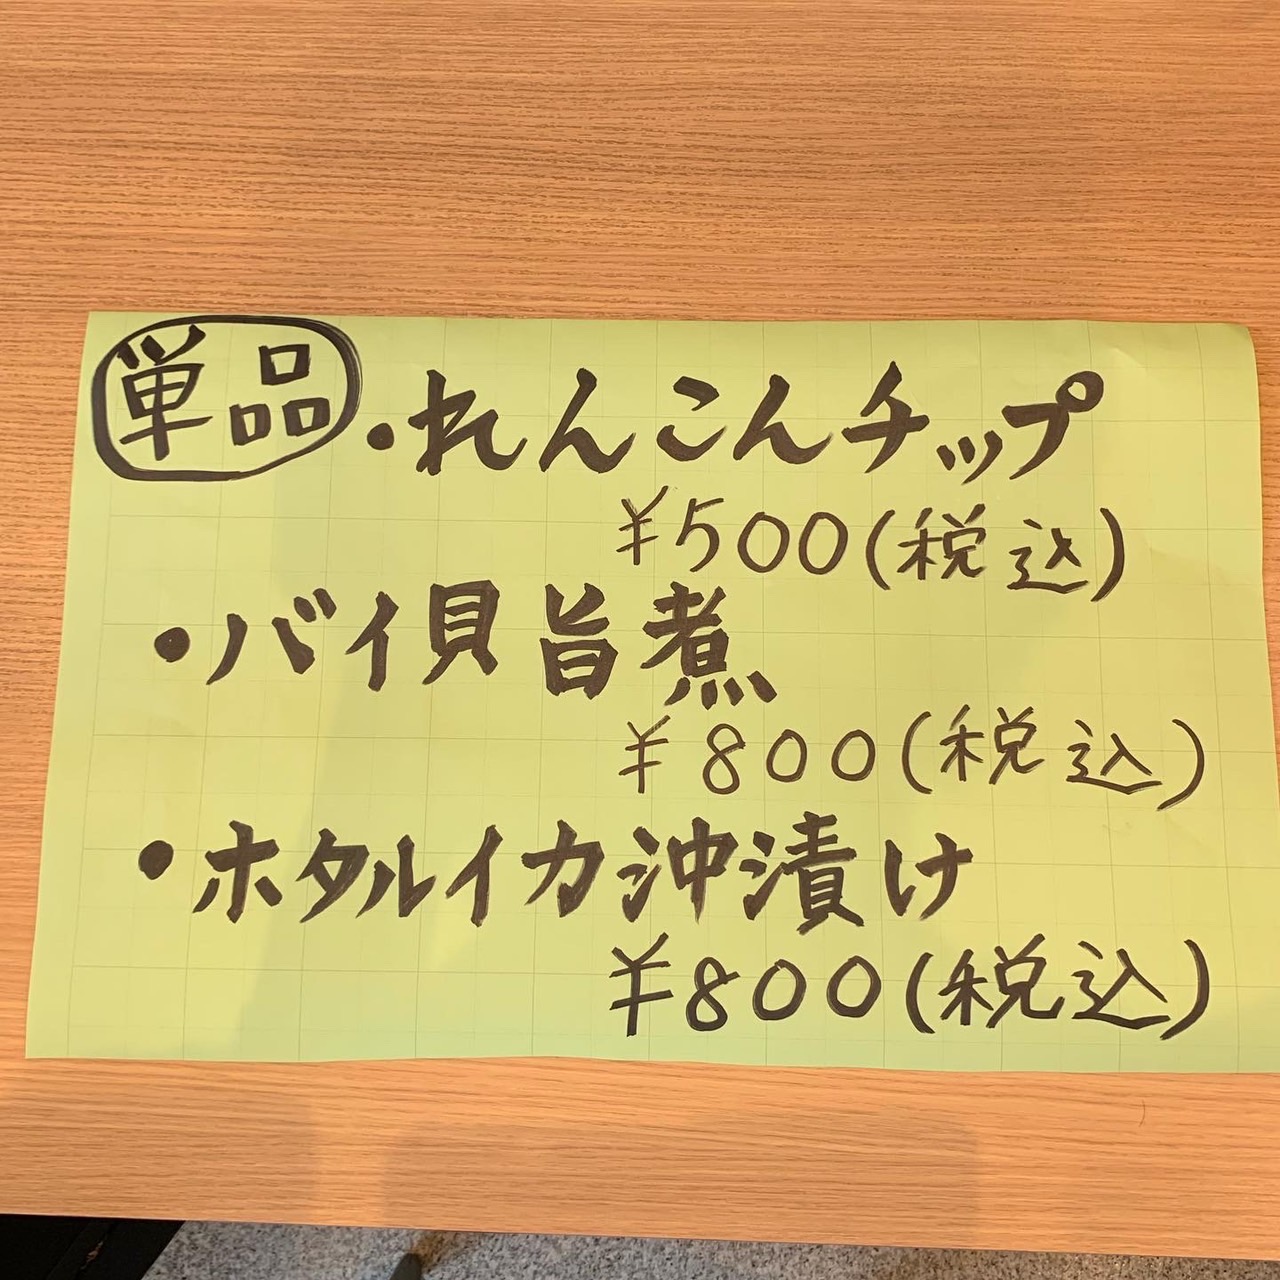 単品
・れんこんチップ
¥500(税込)
・バイ貝旨煮
¥800(税込)
・ホタルイカ沖漬け
¥800(税込)